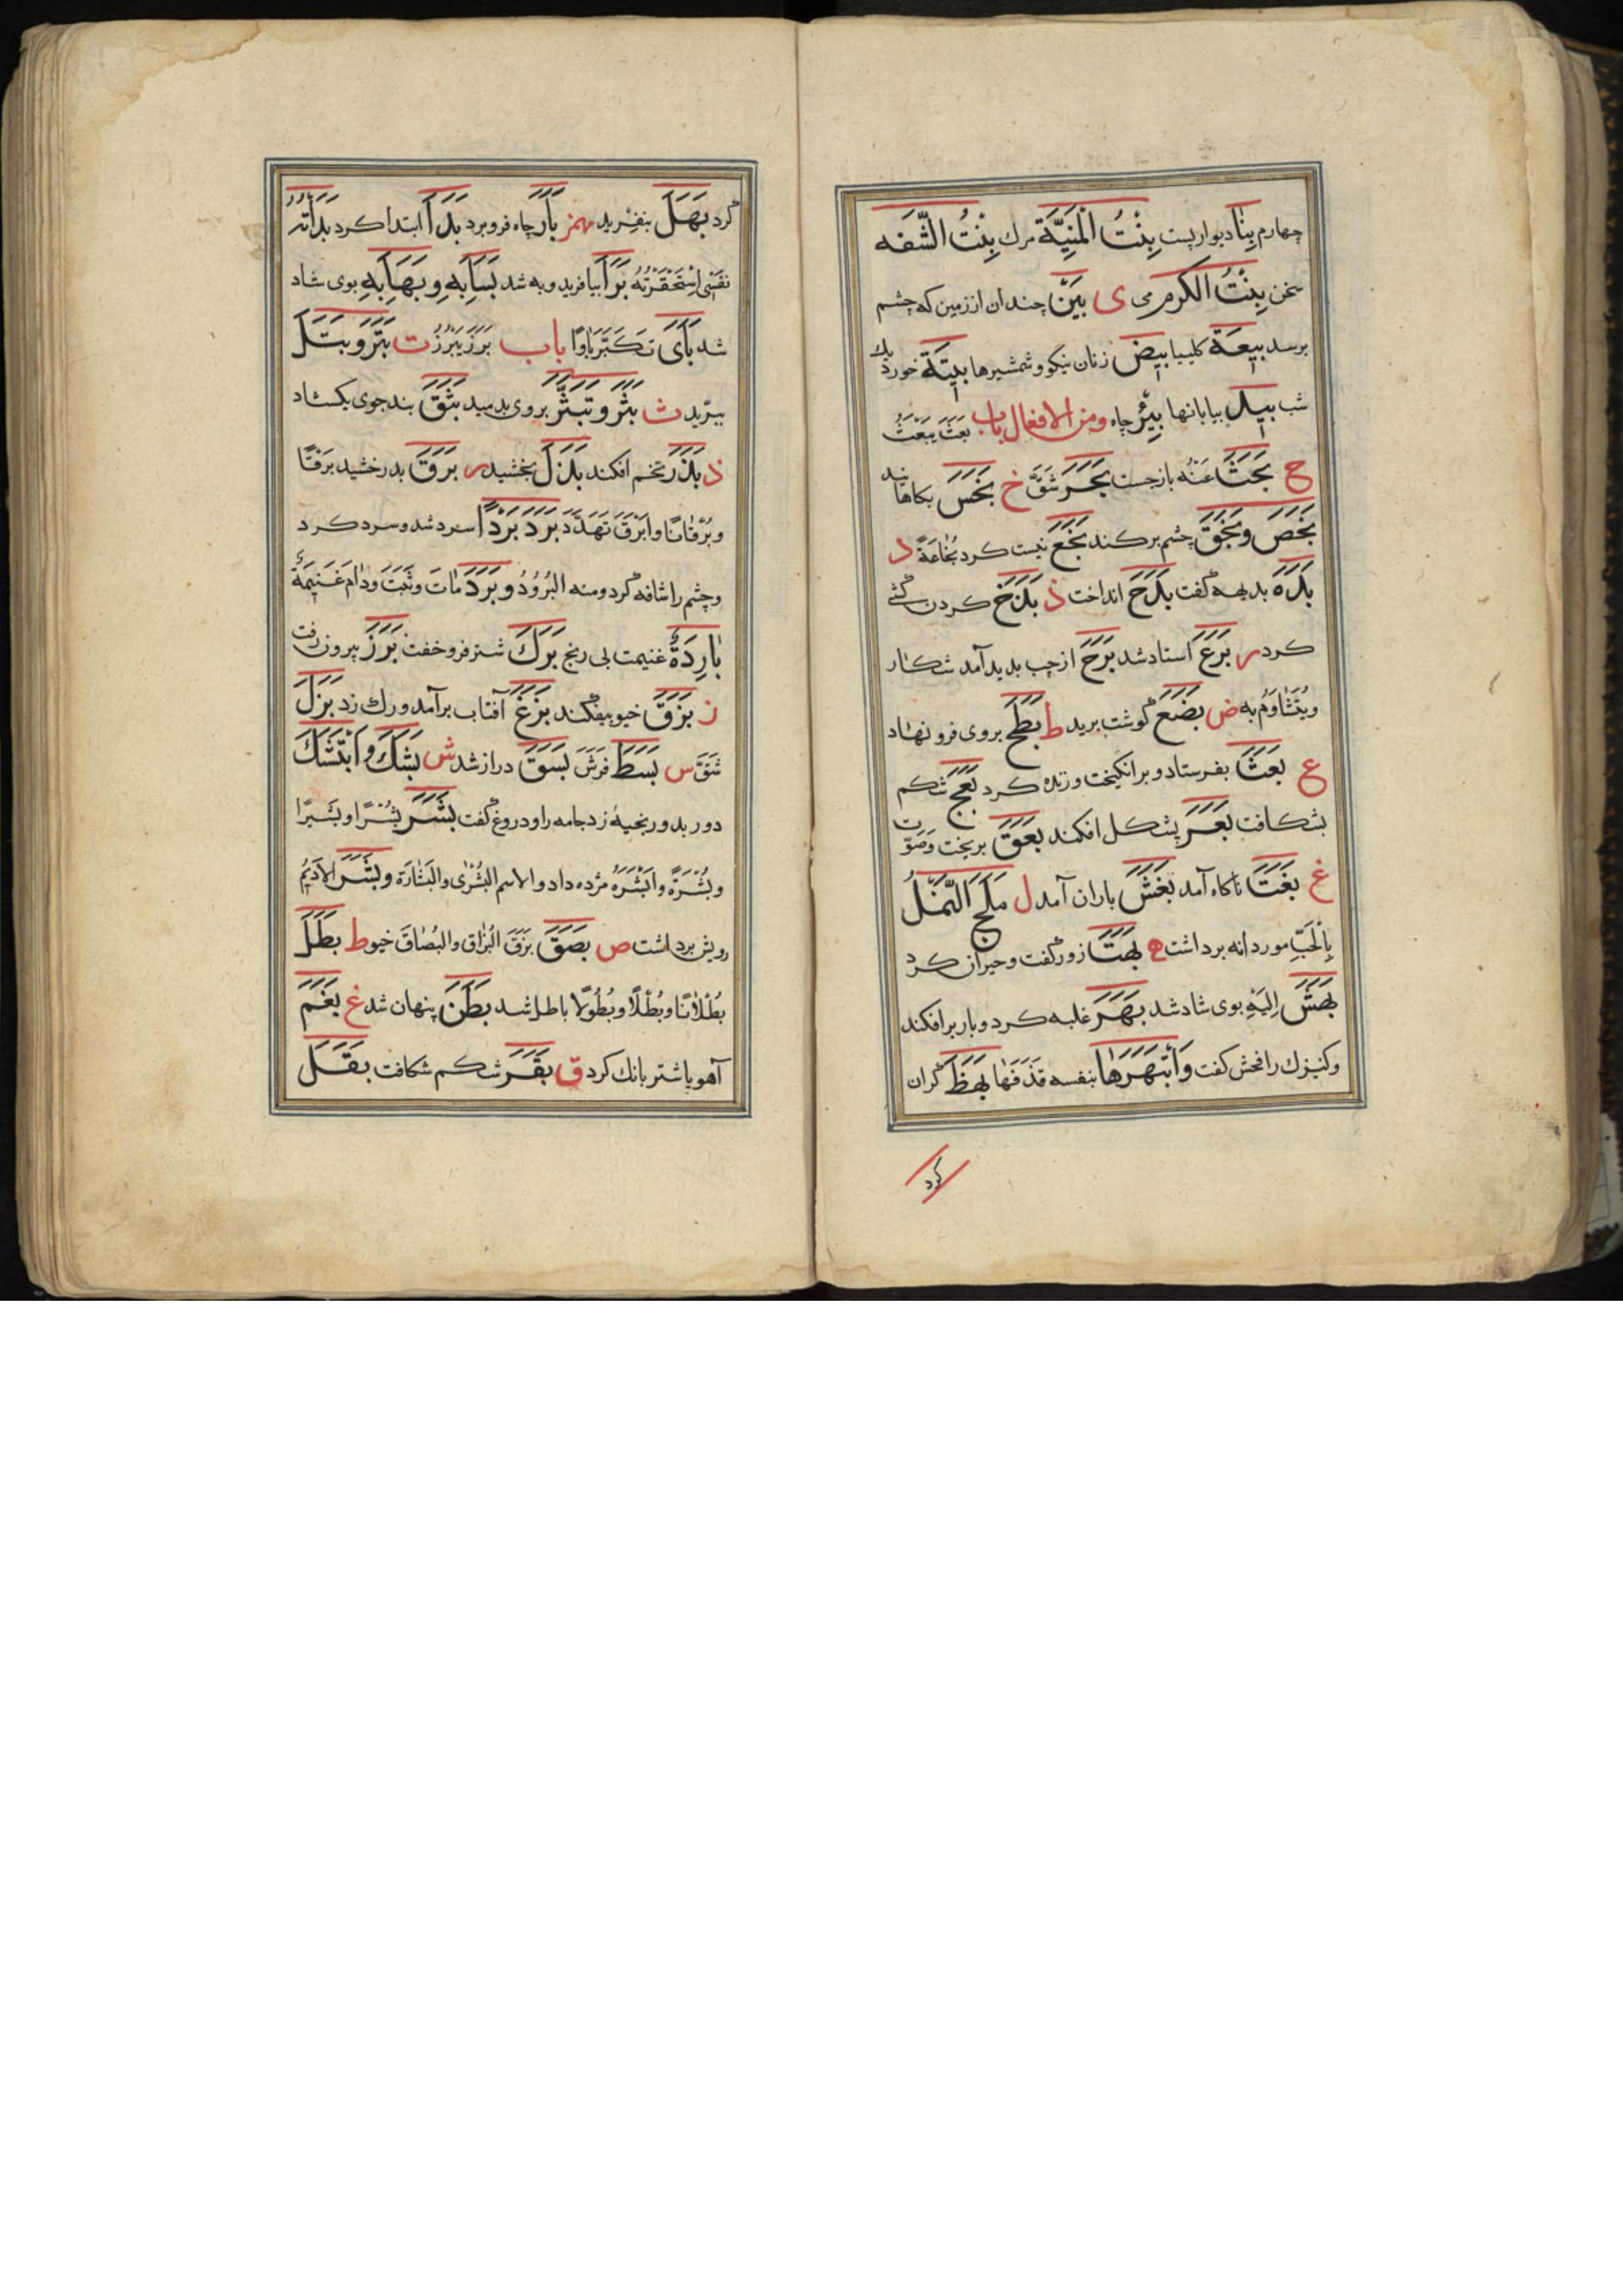 چهارم بِنٰا دیواریست بِنْتُ الْمَنِیَّة مرك بِنْتُ الشَّفَه
سخن بِنْتُ الکَرم می ی بَیْن چندان از زمین که چشم
برسد بِیعَة کلیسیا بِیض زنان نیکو و شمشیرها بِیتَة خورد یك
شب بِید بیابانها بِئْر چاه ومن الافعال باب بَعَثَ یَبْعَثُ
ح بَحَثَ عَنْهُ بازجست بَحَرَ شَقَّ خ بَخَسَ بکاهانید
بَخَصَ وبَخَقَ چشم برکند بَخَعَ نیست کرد بُخٰاعَةً د
بَدَهَ بدیهه گفت بَدَحَ انداخت ذ بَذَخَ کردن کشی
کرد ر بَرَعَ استاد شد بَرَحَ از چپ بدید آمد شکار
ویُتَشٰاوَمُ به ض بَضَعَ گوشت برید ط بَطَحَ بروی فرو نهاد
ع بَعَثَ بفرستاد و برانکیخت وزنده کرد بَعَجَ شکم
بشکافت بَعَرَ پشکل افکند بَعَقَ بریخت وصَوَّت
غ بَغَتَ ناکاه آمد بَغَشَ باران آمد ل مَلَجَ النَّمْلُ
بِالْحَبِّ مور دانه برداشت ه بَهَتَ زور گفت وحیران کرد
بَهَشَ اِلَیْهِ بوی شاد شد بَهَرَ غلبه کرد و بار برافکند
وکنیزك را فحش کفت وَابْتَهَرَهٰا بنفسه قَذَفَهٰا بَهَظَ گران
کرد
گرد بَهَلَ بنفرید همز بَأَرَ چاه فرو برد بَدَأَ ابتدا کرد بَدَأَتْهُ
نَفْسٖی اِسْتَحْقَرْتُهُ بَرَأَ بیافرید و به شد بَسَأَ بِهِ وبَهَأَ بِهِ بوی شاد
شد بَأَی تَکَبَّرَ بَأوًا باب بَرَزَ یَبْرُزُ ت بَتَرَ وبَتَلَ
ببرّید ث بَثَرَ وتَبَثَّرَ بروی بدمید بَثَقَ بند جوی بکشاد
ذ بَذَرَ تخم افکند بَذَلَ بخشید ر بَرَقَ بدرخشید بَرْقًا
وبُرْقٰانًا وابَرَقَ تَهَدَّدَ بَرَدَ بَرْدًا سرد شد وسرد کرد
وچشم را شافه کرد ومنه البَرُودُ وبَرَدَ مٰاتَ وثَبَتَ ودٰامَ غَنٖیمَةٌ
بٰارِدَةٌ غنیمت بی رنج بَرَكَ شتر فرو خفت بَرَزَ بیرون رفت
ز بَزَقَ خیو بیفکند بَزَغَ آفتاب برآمد ورك زد بَزَلَ
شَقَّ س بَسَطَ فَرَشَ بَسَقَ دراز شد ش بَشَكَ وابْتَشَكَ
دور بدور بخیه زد جامه را ودروغ گفت بَشَرَ بُشْرًا وبَشٖیرًا
وبُشْرَةً وابْشَرَهُ مژده داد والاسم البُشْرٰی والبَشٰارَة وبَشَرَ الاَدٖیمَ
رویش برداشت ص بَصَقَ بَزَقَ البُزٰاق والبُصٰاقَ خیو ط بَطَلَ
بُطْلاٰنًا وبُطْلًا وبُطُولًا باطل شد بَطَنَ پنهان شد غ بَغَمَ
آهو یا شتر بانك کرد ق بَقَرَ شکم شکافت بَقَلَ